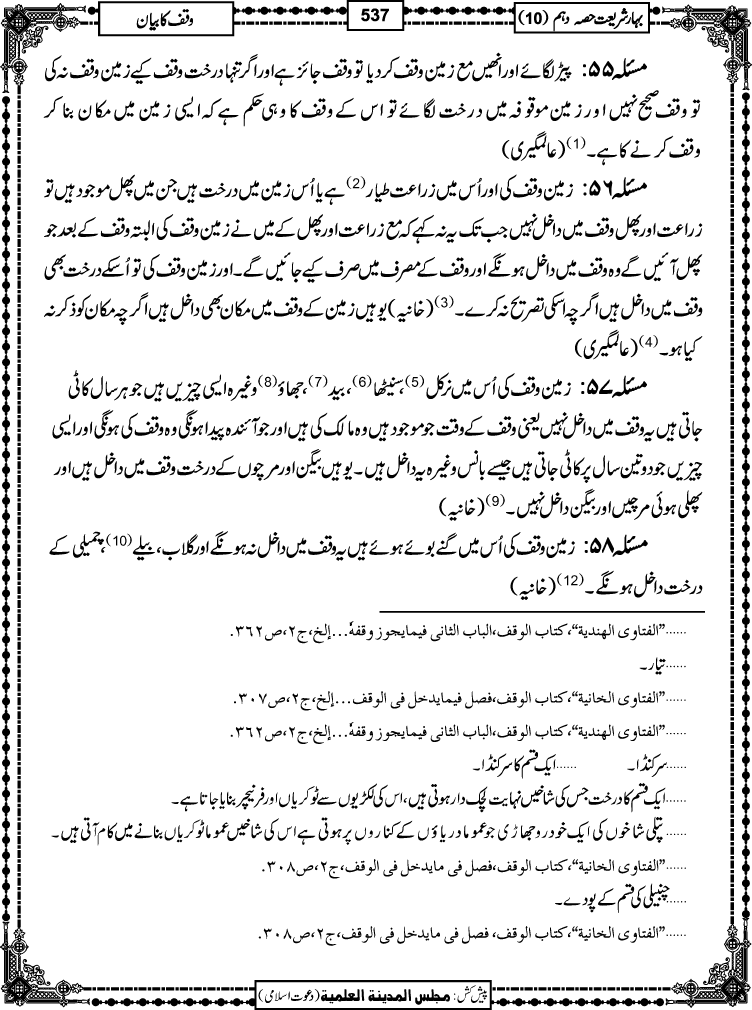 بہار شریعت حصہ دہم (10)
537
وقف کا بیان
مسئلہ ۵۵: پیڑ لگائے اور انھیں مع زمین وقف کردیا تو وقف جائز ہے اور اگر تنہا درخت وقف کیے زمین وقف نہ کی
تو وقف صحیح نہیں اور زمین موقوفہ میں درخت لگائے تو اس کے وقف کا وہی حکم ہے کہ ایسی زمین میں مکان بنا کر
وقف کرنے کا ہے۔(1) (عالمگیری)
مسئلہ ۵۶: زمین وقف کی اور اُس میں زراعت طیار(2) ہے یا اُس زمین میں درخت ہیں جن میں پھل موجود ہیں تو
زراعت اور پھل وقف میں داخل نہیں جب تک یہ نہ کہے کہ مع زراعت اور پھل کے میں نے زمین وقف کی البتہ وقف کے بعد جو
پھل آئیں گے وہ وقف میں داخل ہونگے اور وقف کے مصرف میں صرف کیے جائیں گے۔ اور زمین وقف کی تو اُسکے درخت بھی
وقف میں داخل ہیں اگرچہ اسکی تصریح نہ کرے۔(3) (خانیہ) یوہیں زمین کے وقف میں مکان بھی داخل ہیں اگرچہ مکان کو ذکر نہ
کیا ہو۔(4) (عالمگیری)
مسئلہ ۵۷: زمین وقف کی اُس میں نرکل(5)، سینٹھا(6)، بید(7)، جھاؤ(8) وغیرہ ایسی چیزیں ہیں جو ہر سال کاٹی
جاتی ہیں یہ وقف میں داخل نہیں یعنی وقف کے وقت جو موجود ہیں وہ مالک کی ہیں اور جو آئندہ پیدا ہونگی وہ وقف کی ہونگی اور ایسی
چیزیں جو دو تین سال پر کاٹی جاتی ہیں جیسے بانس وغیرہ یہ داخل ہیں۔ یوہیں بیگن اور مرچوں کے درخت وقف میں داخل ہیں اور
پھلی ہوئی مرچیں اور بیگن داخل نہیں۔(9) (خانیہ)
مسئلہ ۵۸: زمین وقف کی اُس میں گنے بوئے ہوئے ہیں یہ وقف میں داخل نہ ہونگے اور گلاب، بیلے(10)، چمیلی کے
درخت داخل ہونگے۔(12) (خانیہ)
......”الفتاوی الهندية“، کتاب الوقف، الباب الثانی فیمایجوز وقفہٗ...إلخ، ج۲، ص۳۶۲.
......تیار۔
......”الفتاوی الخانیة“، کتاب الوقف، فصل فیمایدخل فی الوقف...إلخ، ج۲، ص۳۰۷.
......”الفتاوی الهندية“، کتاب الوقف، الباب الثانی فیمایجوز وقفہٗ...إلخ، ج۲، ص۳۶۲.
......سرکنڈا۔ ......ایک قسم کا سرکنڈا۔
......ایک قسم کا درخت جس کی شاخیں نہایت لچک دار ہوتی ہیں، اس کی لکڑیوں سے ٹوکریاں اور فرنیچر بنایا جاتا ہے۔
......پتلی شاخوں کی ایک خودرو جھاڑی جو عموما دریاؤں کے کناروں پر ہوتی ہے اس کی شاخیں عموما ٹوکریاں بنانے میں کام آتی ہیں۔
......”الفتاوی الخانیة“، کتاب الوقف، فصل فی مایدخل فی الوقف، ج۲، ص۳۰۸.
......چنبیلی کی قسم کے پودے۔
......”الفتاوی الخانیة“، کتاب الوقف، فصل فی مایدخل فی الوقف، ج۲، ص۳۰۸.
پیش کش: مجلس المدینة العلمیة (دعوت اسلامی)